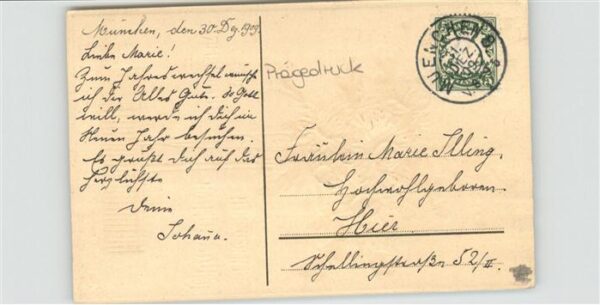 München, den 30. Dez. 1909.
Liebe Marie!
Zum Jahreswechsel wünsch
ich dir Alles Gute. So Gott
will, werde ich dich im
Neuen Jahr besuchen.
Es grüßt dich auf das
herzlichste
Deine
Johana.
Prägedruck
MUENCHEN
Fräulein Marie Illing,
Hochwohlgeboren.
Hier
Schellingstraße 52/II.